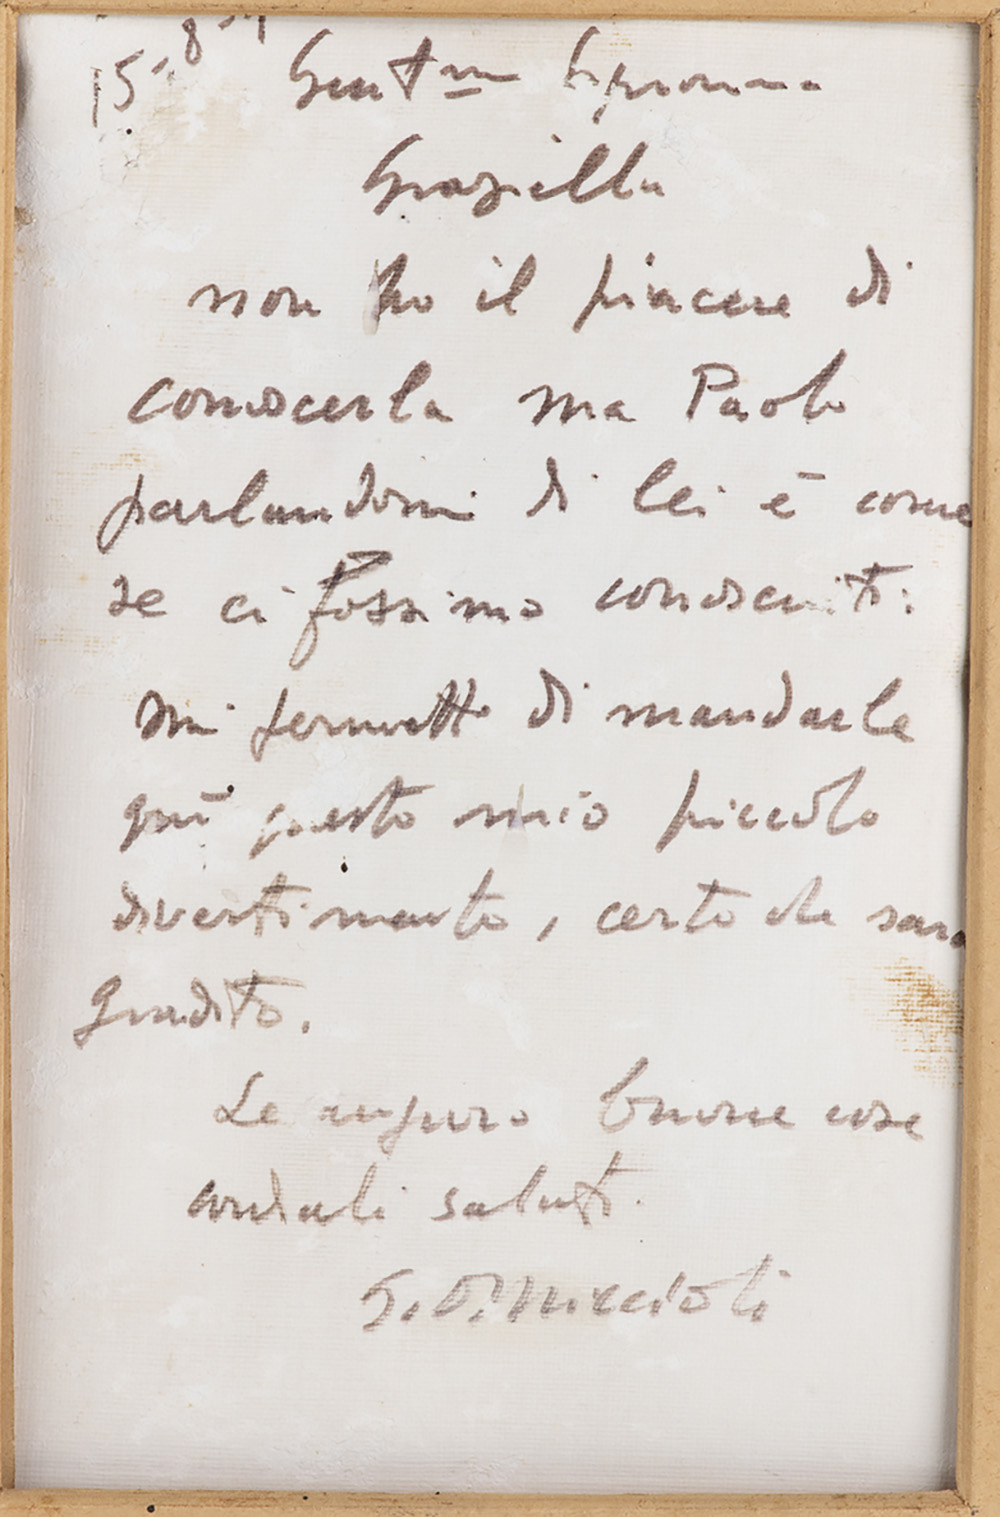 15-8-
Gent.ma Signora
Graziella
non ho il piacere di
conoscerla ma Paolo
parlandomi di lei è come
se ci fossimo conosciuti.
Mi permetto di mandarle
quì questo mio piccolo
divertimento, certo che sarà
gradito.
Le auguro buone cose
cordiali saluti.
G. O.